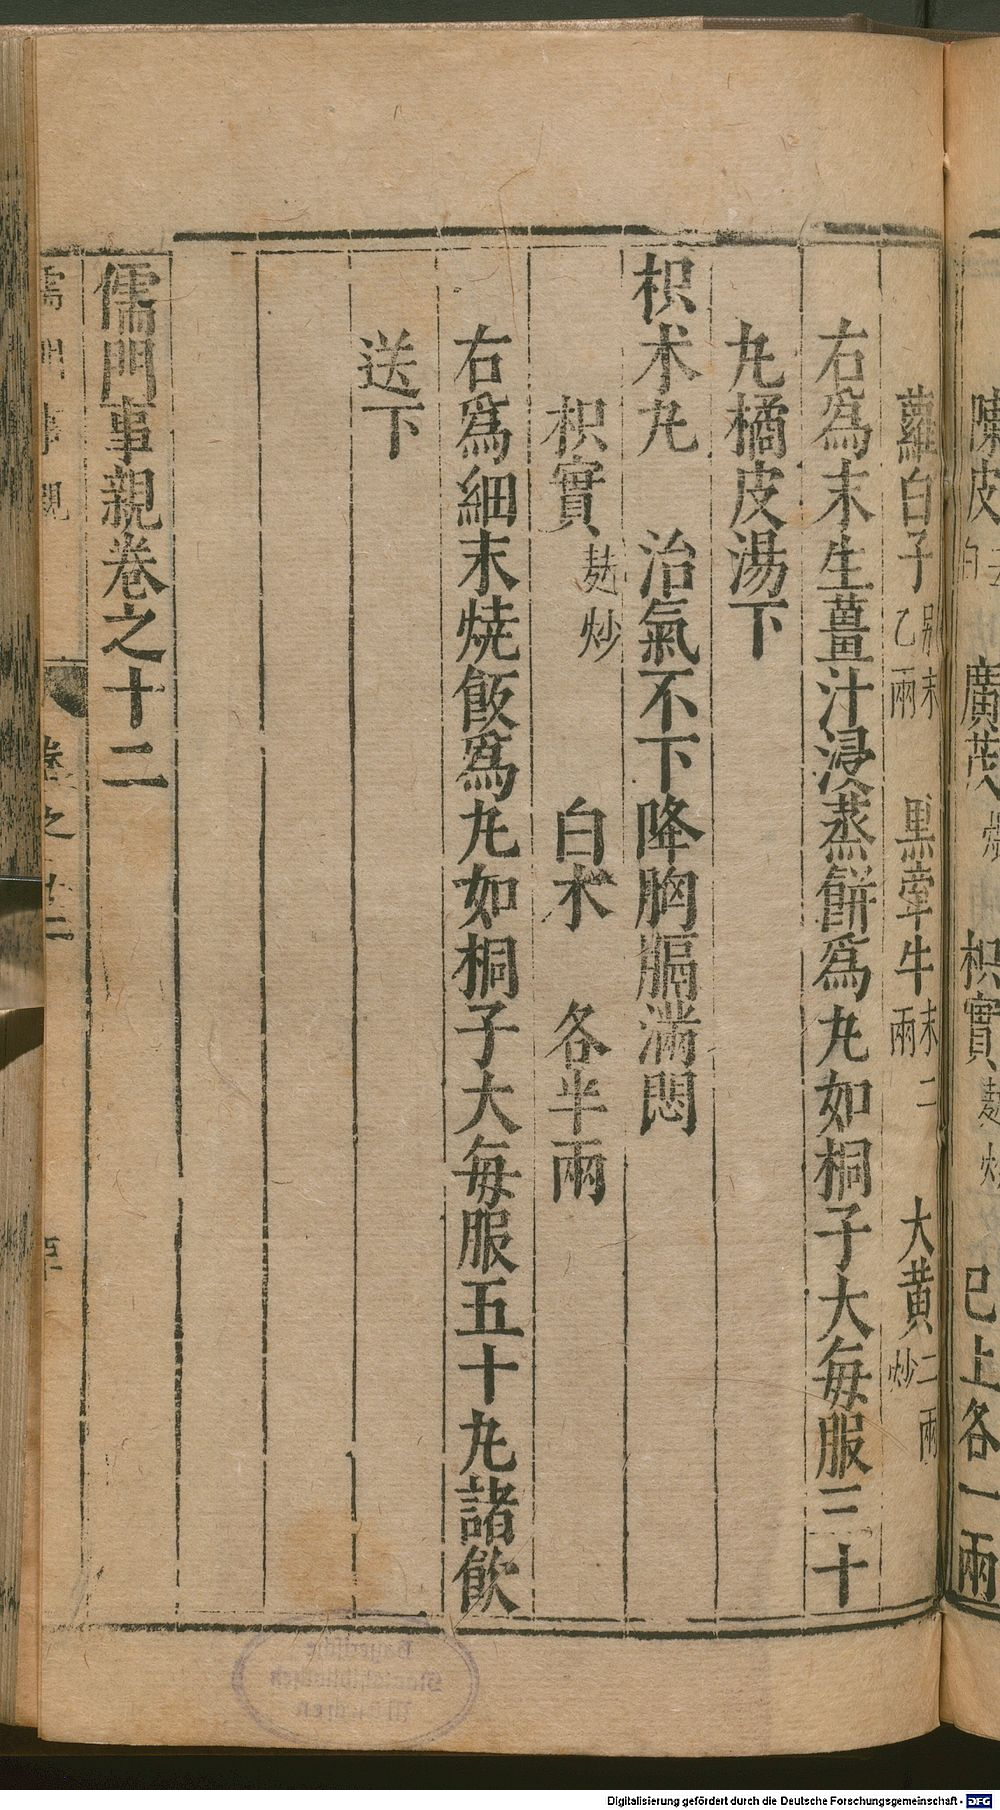 陳皮去白 廣茂炒 枳實麸炒 已上各一兩
蘿白子別末乙兩 黒牽牛末二兩 大黄二兩炒
右爲末生薑汁浸蒸餅爲九如桐子大每服三十
九橘皮湯下
枳术九 治氣不下降胸膈滿悶
枳實麸炒 白术 各半兩
右爲細末燒飯爲九如桐子大每服五十九諸飲
送下
儒門事親卷之十二
儒門事親 卷之十二
Bayerische
Staatsbibliothek
München
Digitalisierung gefördert durch die Deutsche Forschungsgemeinschaft - DFG